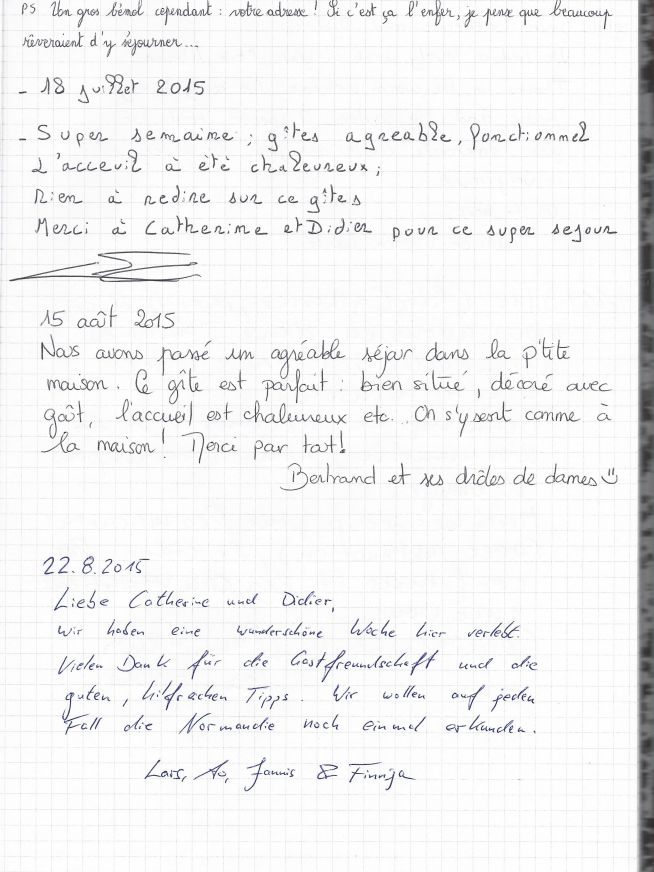 PS Un gros bémol cependant : votre adresse ! Si c'est ça l'enfer, je pense que beaucoup
rêveraient d'y séjourner...
- 18 juillet 2015
- Super semaine ; gîtes agreable, fonctionnel
L'acceuil à été chaleureux ;
Rien à redire sur ce gîtes
Merci à Catherine et Didier pour ce super sejour
15 août 2015
Nous avons passé un agréable séjour dans la p'tite
maison. Ce gîte est parfait : bien situé, décoré avec
goût, l'accueil est chaleureux etc... On s'y sent comme à
la maison ! Merci par tout !
Bertrand et ses drôles de dames
22.8.2015
Liebe Catherine und Didier,
wir haben eine wunderschöne Woche hier verlebt.
Vielen Dank für die Gastfreundschaft und die
guten, hilfreichen Tipps. Wir wollen auf jeden
Fall die Normandie noch einmal erkunden.
Lars, Jannis & Finnja